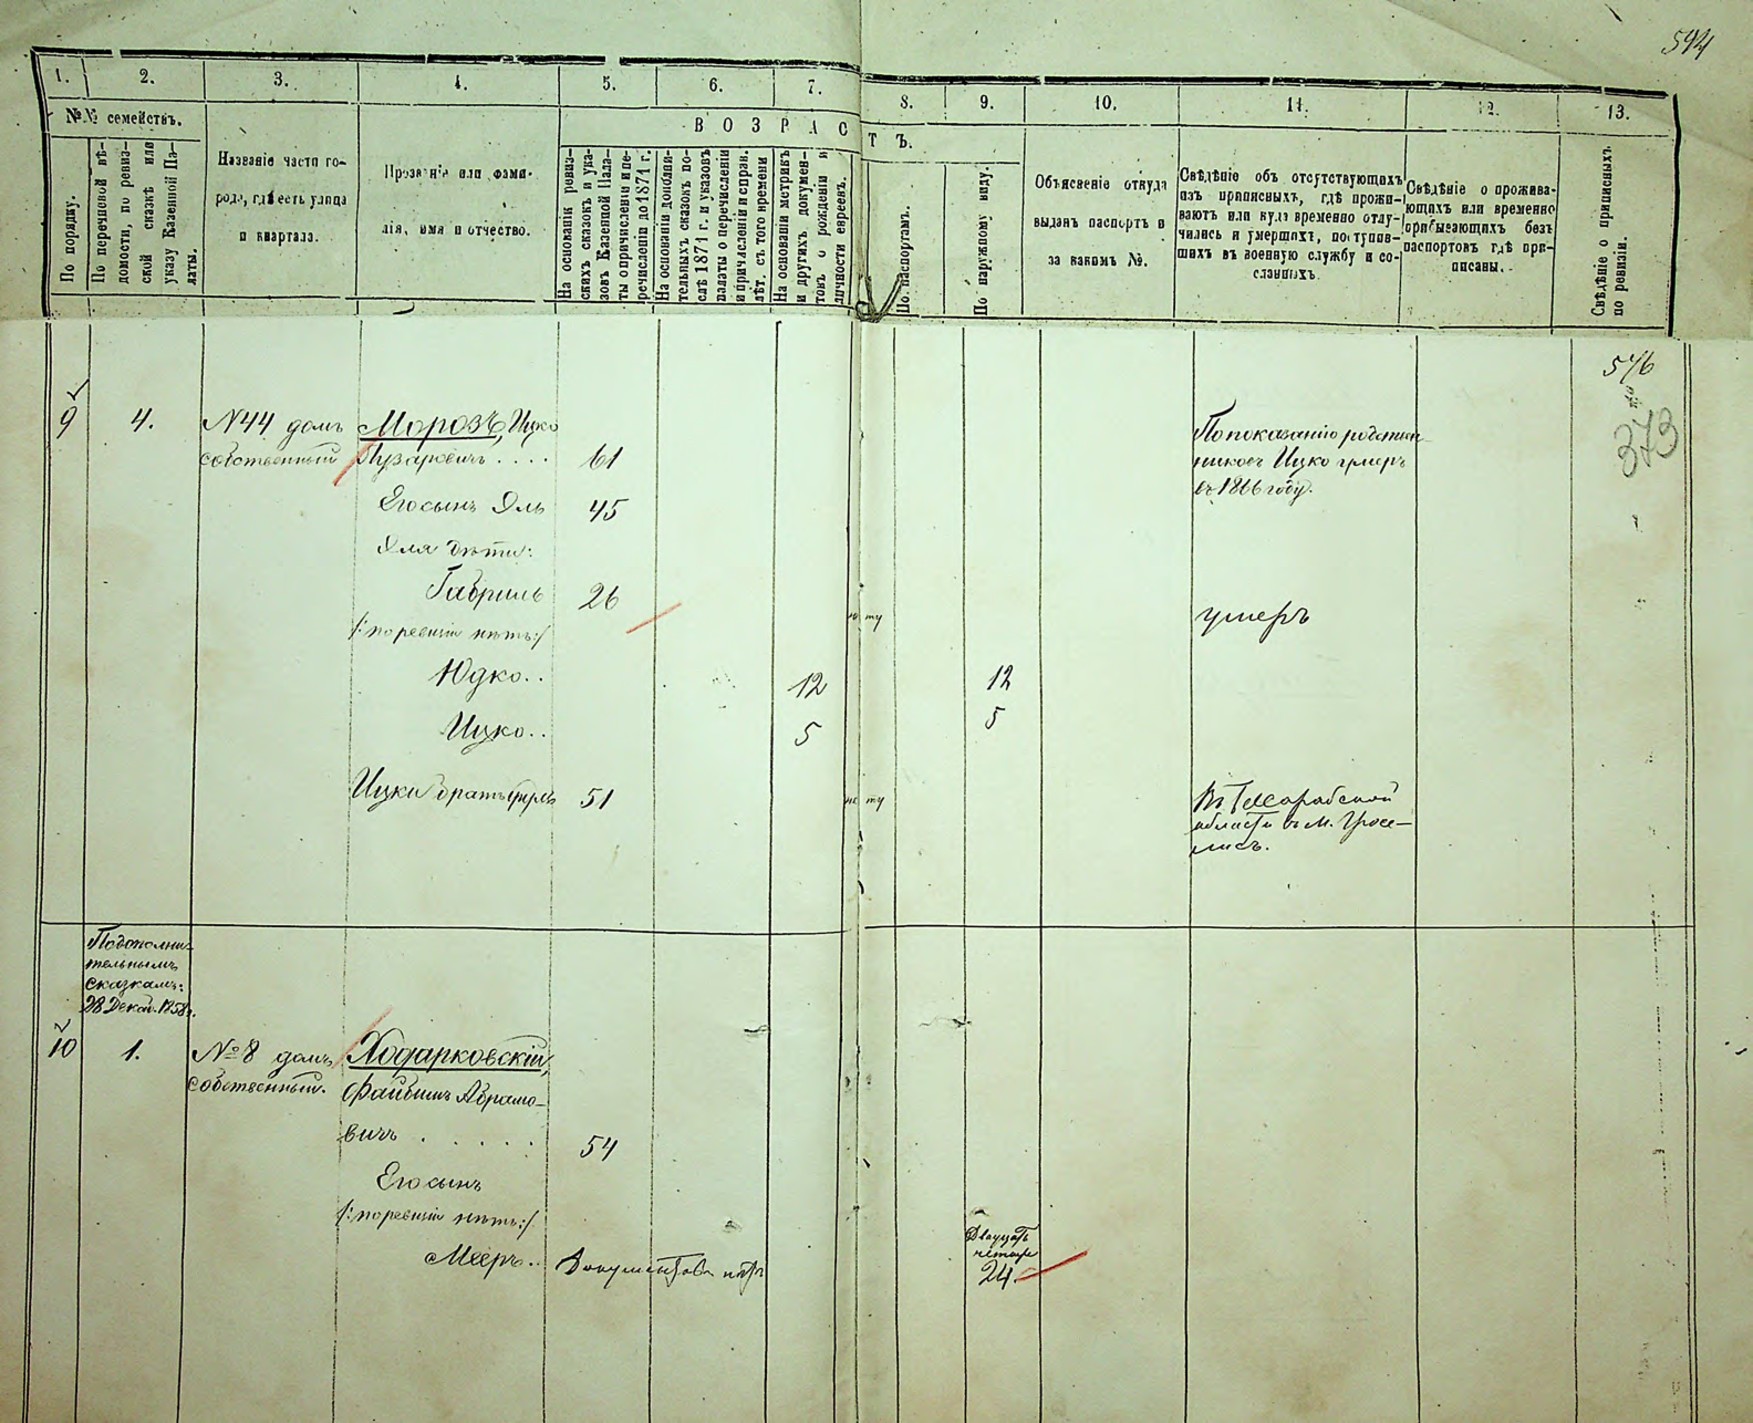 594
1. 2. 3. 4. 5. 6. 7. 8. 9. 10. 11. 12. 13.
№№ семействъ.
По порядку.
По перечневой вѣ-
домости, по ревиз-
ской сказкѣ или
указу Казенной Па-
латы.
Названіе части го-
рода, гдѣ есть улица
и квартала.
Прозваніе или фами-
лія, имя и отчество.
ВОЗРАСТЪ.
На основаніи ревиз-
скихъ сказокъ и ука-
зовъ Казеной Пала-
ты о причисленіи и пе-
речисленіи до 1871 г.
На основаніи дополни-
тельныхъ сказокъ по-
слѣ 1871 г. и указовъ
палаты о перечисленіи
и причисленіи и справ.
лѣт. съ того времени
На основаніи метрикъ
и другихъ докумен-
товъ о рожденіи и
личности евреевъ.
По паспортамъ.
По наружному виду.
Объясненіе откуда
выданъ паспортъ и
за какимъ №.
Свѣдѣніе объ отсутствующихъ
изъ приписныхъ, гдѣ прожи-
ваютъ или куда временно отлу-
чились и умершихъ, поступив-
шихъ въ военную службу и со-
сланныхъ.
Свѣдѣніе о прожива-
ющихъ или временно
прибывающихъ безъ
паспортовъ гдѣ при-
писаны.
Свѣдѣніе о приписныхъ
по ревизіи.
546
373
9 4. N44 домъ Морозъ, Ицко
собственный Лузаровичъ .... 61
По показанію родствен-
никовъ Ицко умеръ
въ 1866 году.
Его сынъ Эль 45
Эля дѣти:
Гавриль 26 умеръ
/: по ревизіи нѣтъ :/
Юдко.. 12 12
Ицко.. 5 5
Ицки братъ 51
Въ Бессарабской
области въ м.
По дополни-
тельнымъ
сказкамъ:
28 Декаб. 1858 г.
10 1. №8 домъ Ходарковскій,
собственный. Файбишъ Абрамо-
вичъ ..... 54
Его сынъ
/: по ревизіи нѣтъ :/
Мееръ.. Документовъ нѣтъ
Двадцать
четыре
24.